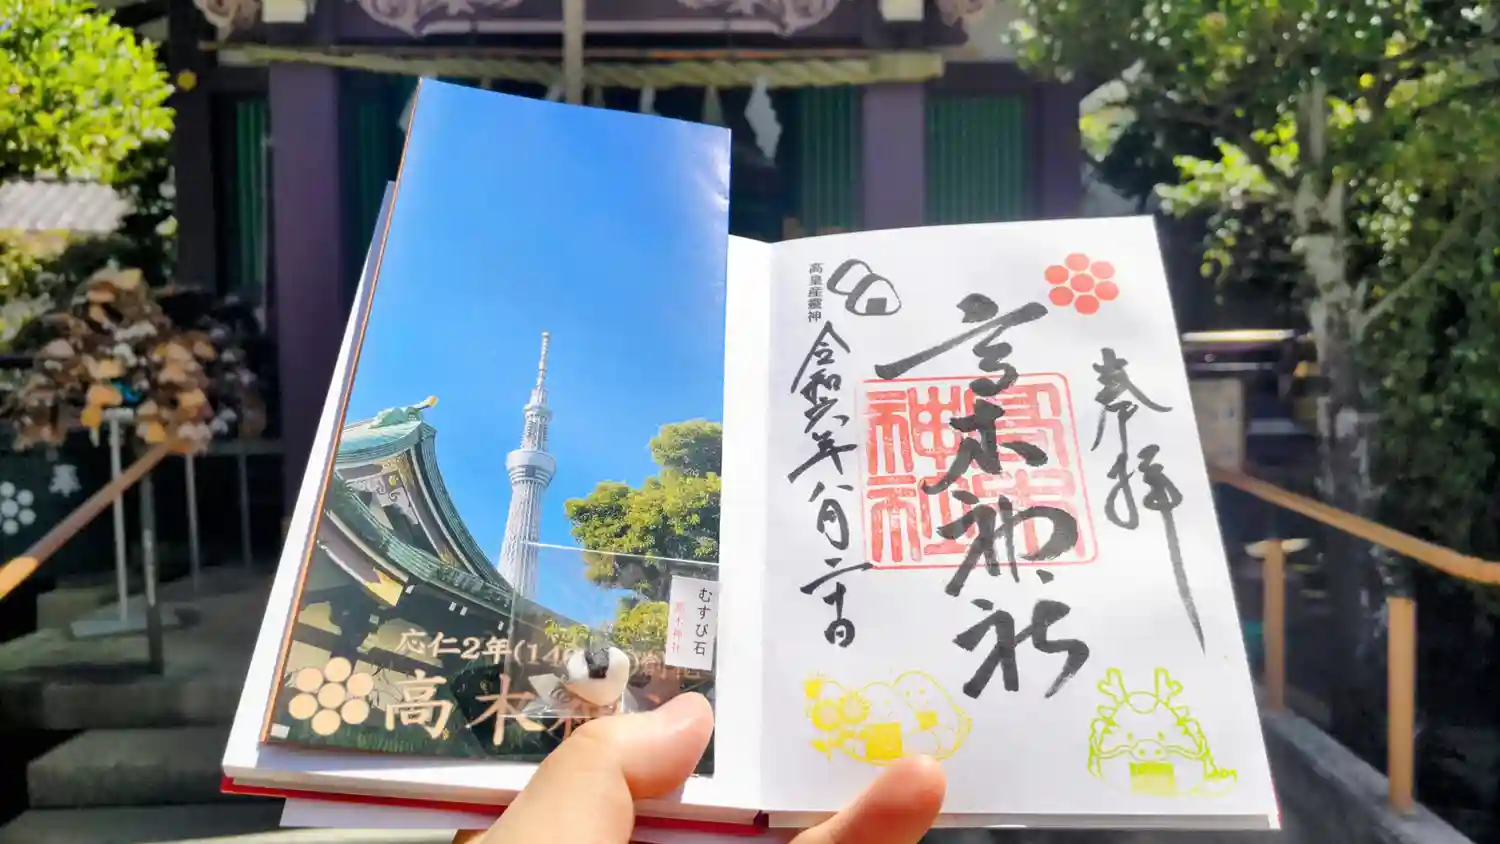 応仁2年(14
高木神
むすび石
高木神社
奉拝
高木神社
高木神社
高皇産靈神
令和六年八月二十日